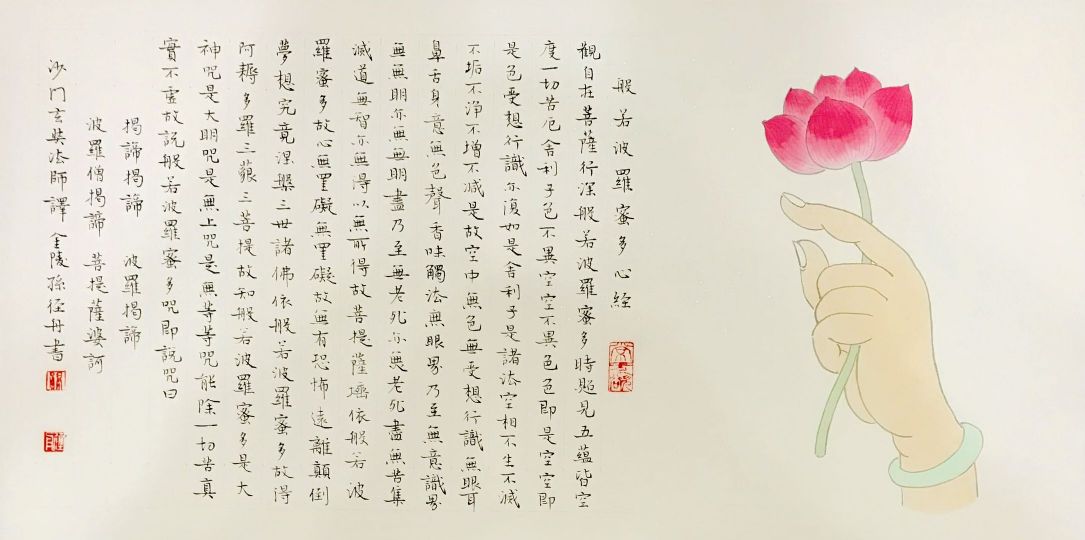 般若波羅蜜多心經
觀自在菩薩行深般若波羅蜜多時照見五蘊皆空
度一切苦厄舍利子色不異空空不異色色即是空空即
是色受想行識亦復如是舍利子是諸法空相不生不滅
不垢不淨不增不減是故空中無色無受想行識無眼耳
鼻舌身意無色聲香味觸法無眼界乃至無意識界
無無明亦無無明盡乃至無老死亦無老死盡無苦集
滅道無智亦無得以無所得故菩提薩埵依般若波
羅蜜多故心無罣礙無罣礙故無有恐怖遠離顛倒
夢想究竟涅槃三世諸佛依般若波羅蜜多故得
阿耨多羅三藐三菩提故知般若波羅蜜多是大
神咒是大明咒是無上咒是無等等咒能除一切苦真
實不虛故說般若波羅蜜多咒即說咒曰
揭諦揭諦 波羅揭諦
波羅僧揭諦 菩提薩婆訶
沙門玄奘法師譯 金陵孫徑丹書